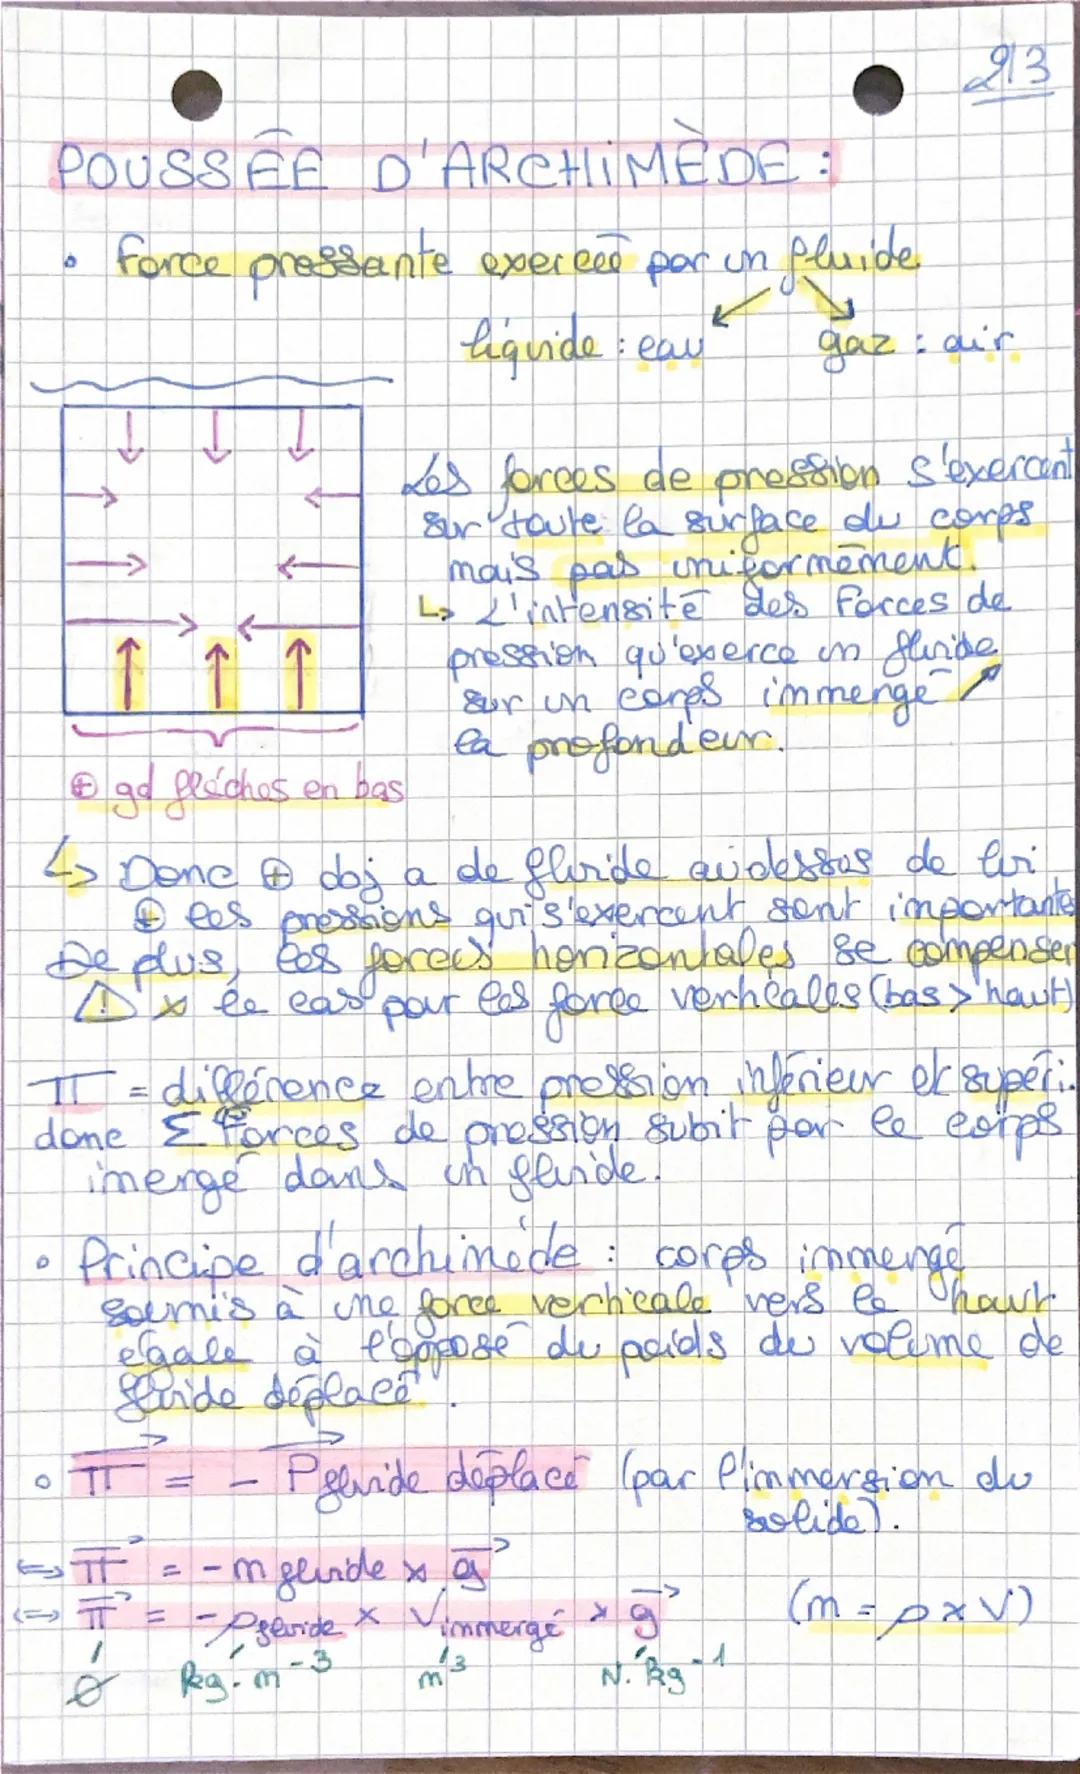 213
POUSSÉE D'ARCHIMÈDE :
• force pressante exercée par un fluide
liquide : eau gaz : air
Les forces de pression s'exercent
sur toute la surface du corps
mais pas uniformément.
↳ L'intensité des forces de
pression qu'exerce un fluide
sur un corps immergé ↗
la profondeur.
⊕ gd flèches en bas
↳ Donc ⊕ doj a de fluide audessus de lui
⊕ les pressions qui s'exercent sont importantes
De plus, les forces horizontales se compensent
⚠ x le cas pour les force verticales (bas > haut)
π = différence entre pression inférieur et supéri.
donc Σ forces de pression subit par le corps
imergé dans un fluide.
• Principe d'archimède : corps immergé
soumis à une force verticale vers le haut
égale à l'opposé du poids du volume de
fluide déplacé".
• π⃗ = - P⃗ fluide déplacé (par l'immersion du
solide).
⇔ π⃗ = - m fluide x g⃗
⇔ π⃗ = - ρ fluide x V immergé x g⃗ (m = ρ x V)
kg.m⁻³ m³ N.kg⁻¹